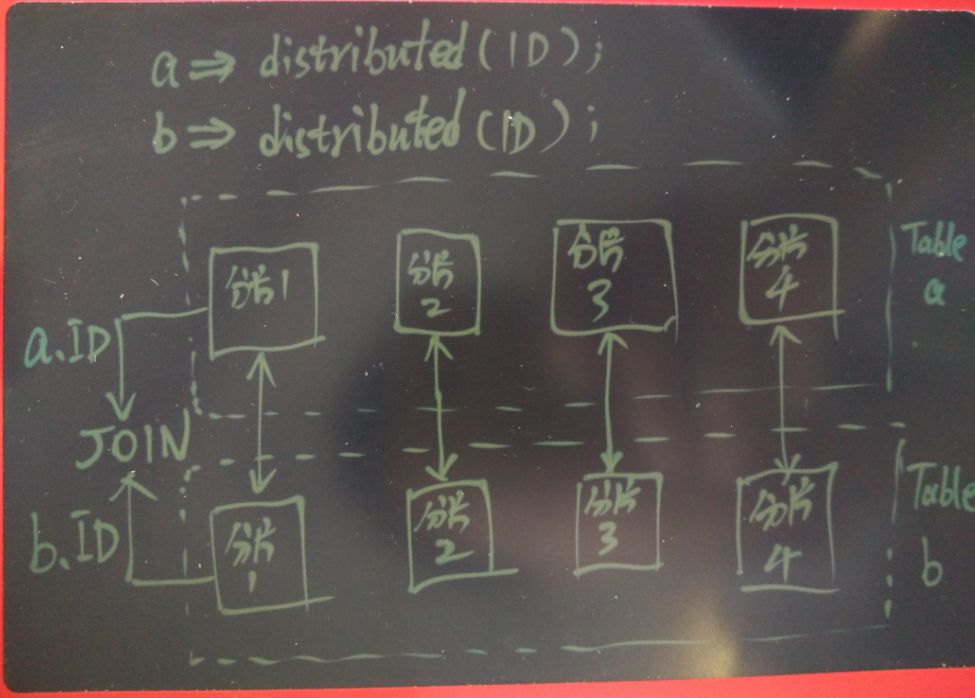 a⇒ distributed(ID);
b⇒ distributed(ID);
分片1
分片
2
分片
3
分片
4
Table
a
a.ID
JOIN
b.ID
分片
1
分片
2
分片
3
分片
4
Table
b